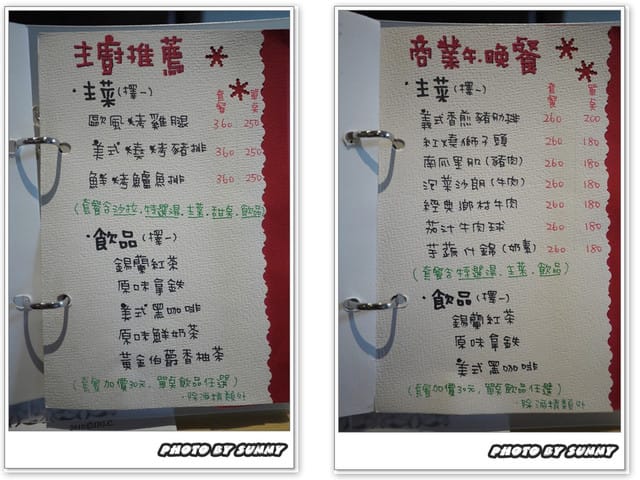 主廚推薦
·主菜(擇一) 套餐 單點
歐風烤雞腿 360 250
美式燒烤豬排 360 250
鮮烤鱸魚排 360 250
(套餐含沙拉.特選湯.主菜.甜點.飲品)
·飲品(擇一)
錫蘭紅茶
原味拿鐵
美式黑咖啡
原味鮮奶茶
黃金伯爵香柚茶
(套餐加價30元.單點飲品任選)
·除酒精類外
PHOTO BY SUNNY
商業午.晚餐
·主菜(擇一) 套餐 單點
義式香煎豬肋排 260 200
紅燒獅子頭 260 180
南瓜里肌(豬肉) 260 180
泡菜沙朗(牛肉) 260 180
經典鄉村牛肉 260 180
茄汁牛肉球 260 180
芋蔬什錦(奶素) 260 180
(套餐含特選湯.主菜.飲品)
·飲品(擇一)
錫蘭紅茶
原味拿鐵
美式黑咖啡
(套餐加價30元.單點飲品任選)
·除酒精類外
PHOTO BY SUNNY